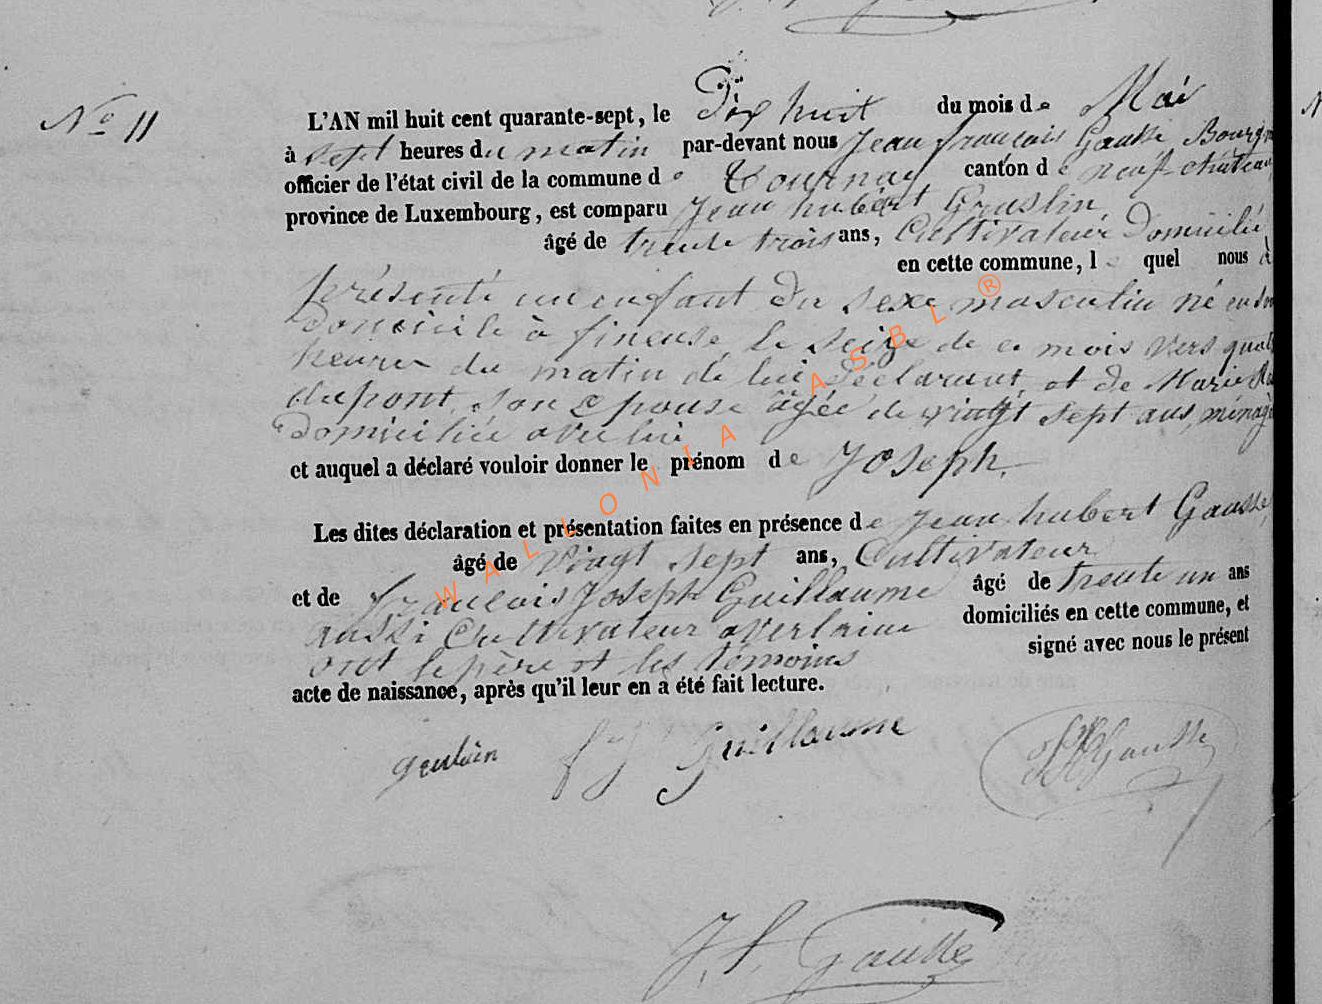 No 11
L'AN mil huit cent quarante-sept, le Dix huit du mois de Mai
à sept heures du matin par-devant nous Jean françois Gausse Bourgm
officier de l'état civil de la commune de Tournay canton de neufchateau
province de Luxembourg, est comparu Jean hubert Graslin
âgé de trente trois ans, Cultivateur Domicilié
en cette commune, l quel nous à
présenté un enfant du sexe masculin né en son
domicile à fineuse le seize de ce mois vers quat
heures du matin de lui déclarant, et de Marie
dupont, son epouse âgée de vingt sept ans, ménag
Domiciliée avec lui
et auquel a déclaré vouloir donner le prénom de Joseph.
Les dites déclaration et présentation faites en présence de Jean hubert Gausse
âgé de vingt sept ans, Cultivateur
et de françois Joseph Guillaume âgé de trente un ans
aussi Cultivateur a verlaine domiciliés en cette commune, et
ont le père et les témoins signé avec nous le présent
acte de naissance, après qu'il leur en a été fait lecture.
f J Guillaume
Gausse
J. f. Gausse
WALLONIA ASBL ®